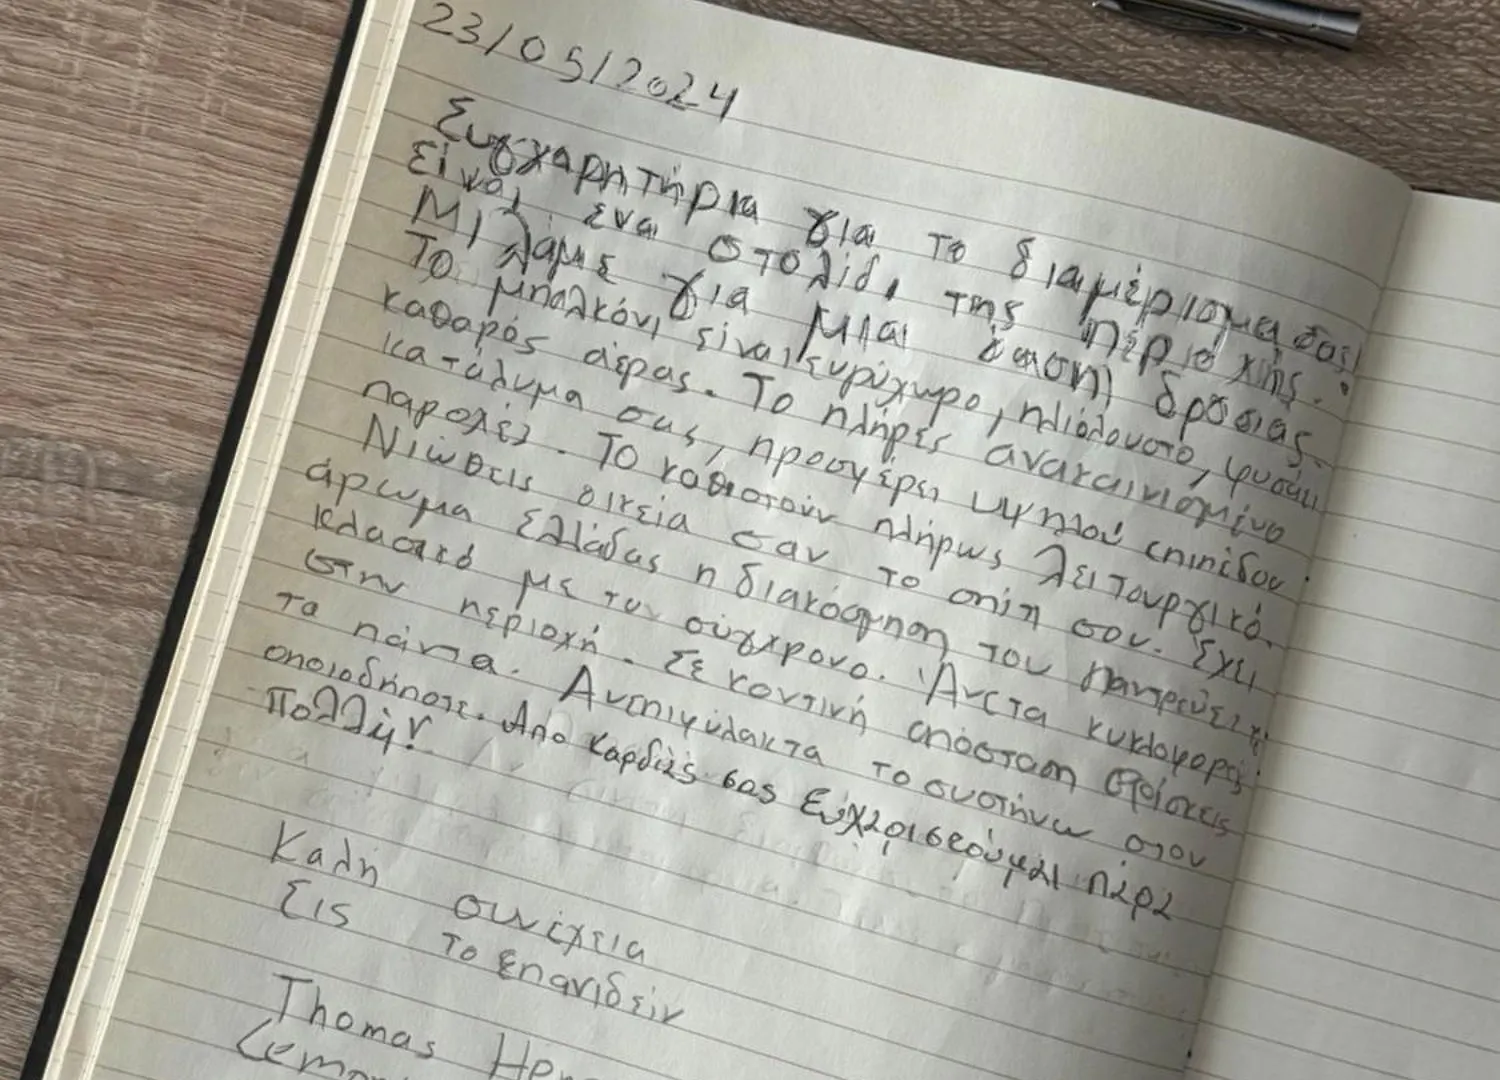 23/05/2024
Συγχαρητήρια για το διαμέρισμα σας!
Είναι ένα στολίδι της περιοχής.
Μιλάμε για μια όαση δροσιάς.
Το μπαλκόνι είναι ευρύχωρο, ηλιόλουστο, φυσάει
καθαρός αέρας. Το πλήρες ανακαινισμένο
κατάλυμα σας, προσφέρει υψηλού επιπέδου
παροχές. Το καθιστούν πλήρως λειτουργικό.
Νιώθεις οικεία σαν το σπίτι σου. Έχει
άρωμα Ελλάδας η διακόσμηση του παντρεύει το
κλασικό με τον σύγχρονο. Άνετα κυκλοφορείς
στην περιοχή. Σε κοντινή απόσταση βρίσκεις
τα πάντα. Ανεπιφύλακτα το συστήνω στον
οποιοδήποτε. Από καρδιάς σας Ευχαριστούμαι πάρα
πολλή!
Καλή συνέχεια
Εις το επανιδείν
Thomas